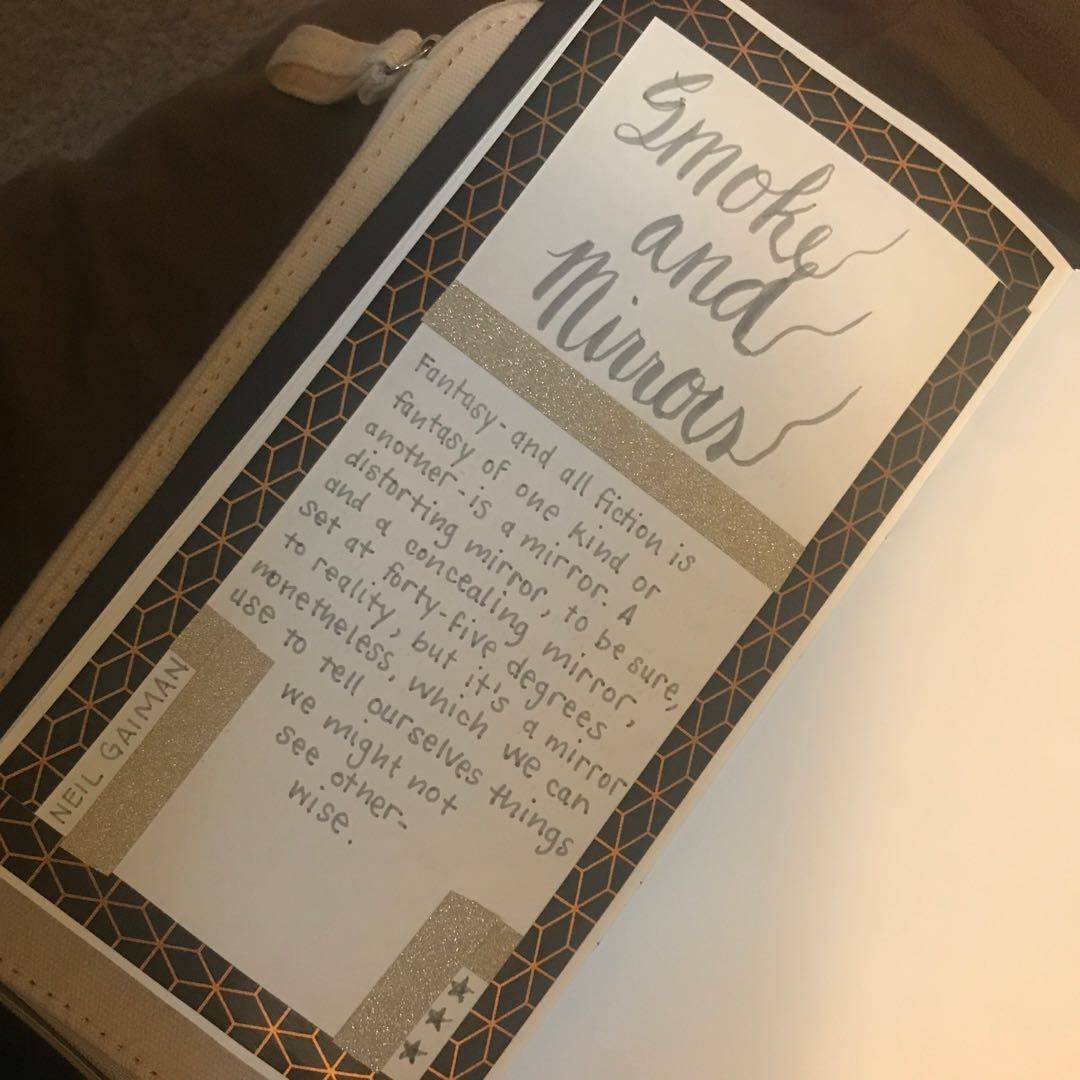 Smoke
and
Mirrors
Fantasy-and all fiction is
fantasy of one kind or
another-is a mirror. A
distorting mirror, to be sure,
and a concealing mirror,
set at forty-five degrees
to reality, but it's a mirror
nonetheless, which we can
use to tell ourselves things
we might not
see other-
wise.
NEIL GAIMAN
★★★